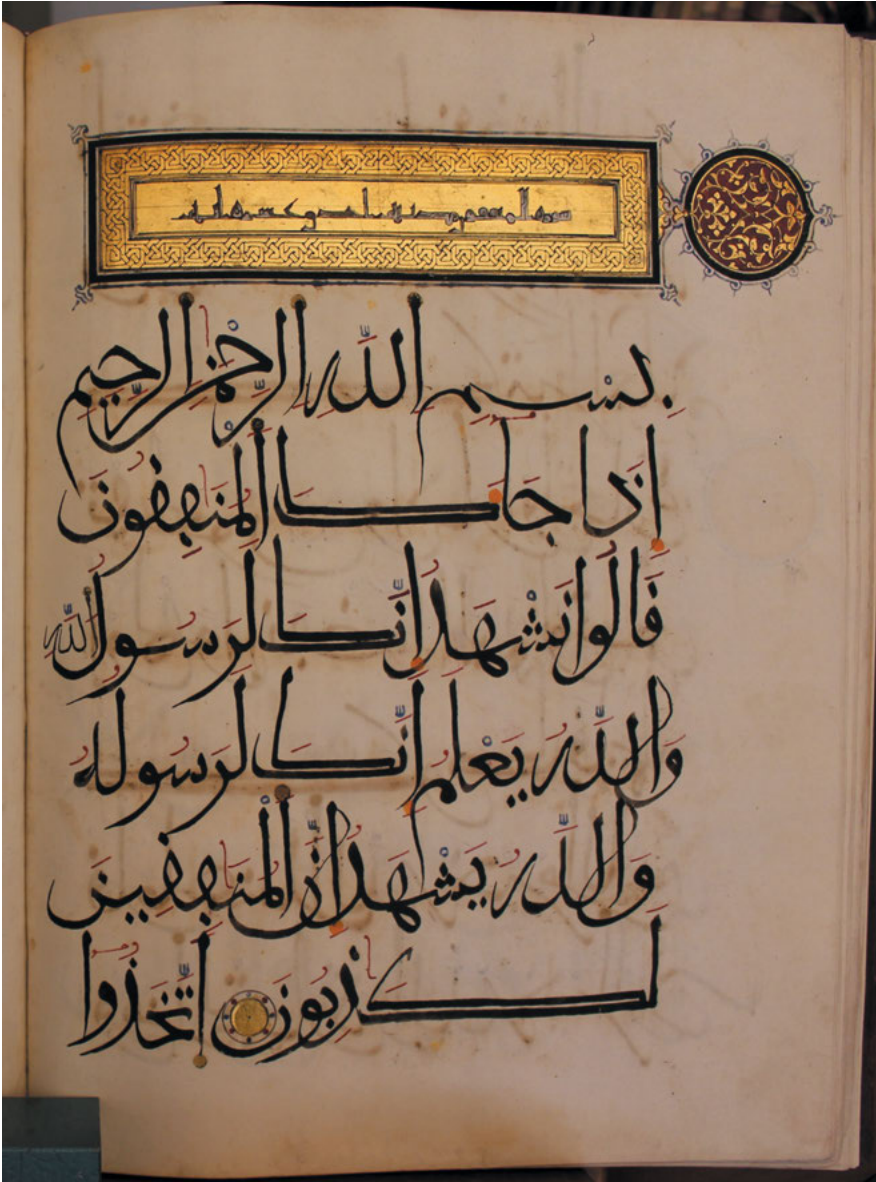 سورة مدنية احدى عشرة اية
بِسْمِ اللَّهِ الرَّحْمٰنِ الرَّحِيمِ
إِذَا جَاءَكَ الْمُنَٰفِقُونَ
قَالُوا نَشْهَدُ إِنَّكَ لَرَسُولُ اللَّهِ
وَاللَّهُ يَعْلَمُ إِنَّكَ لَرَسُولُهُ
وَاللَّهُ يَشْهَدُ إِنَّ الْمُنَٰفِقِينَ
لَكَٰذِبُونَ اتَّخَذُوا